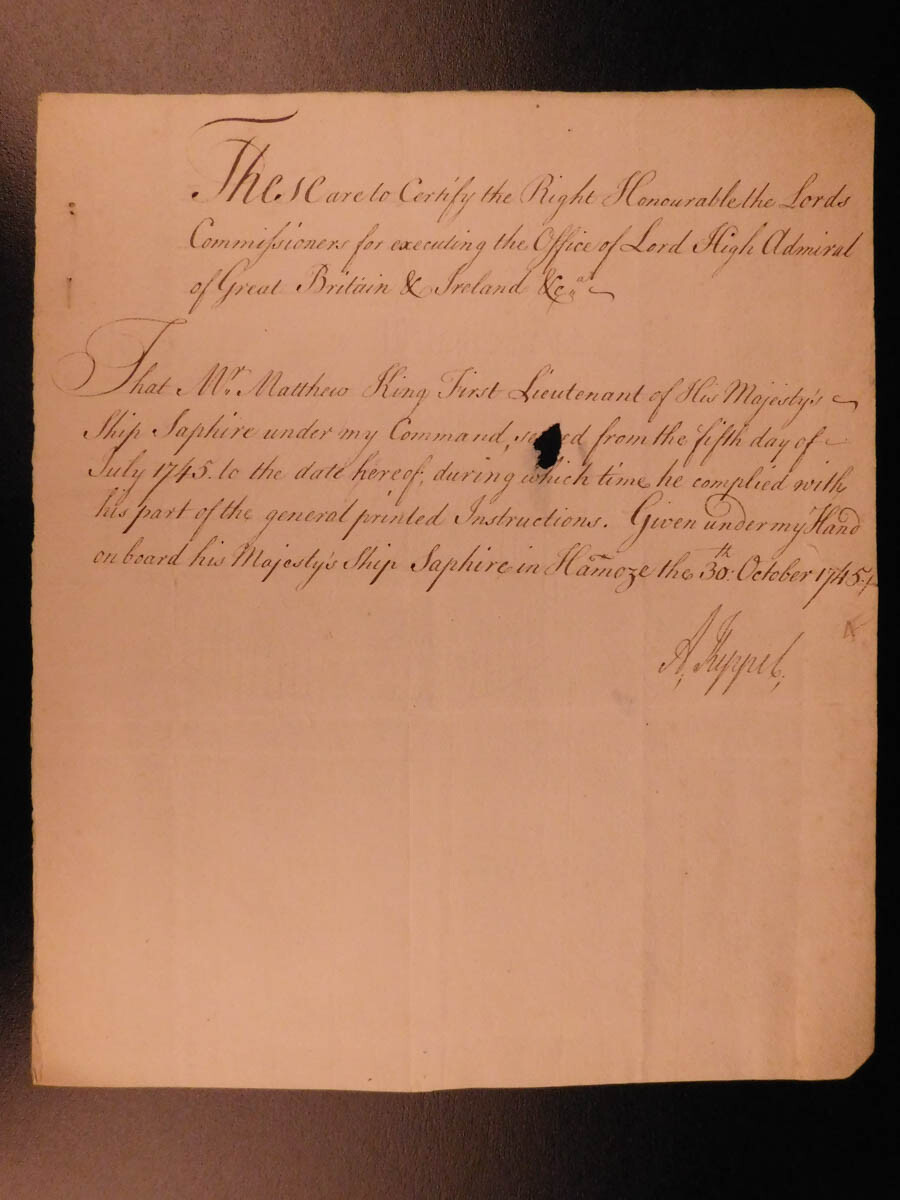 These are to Certify the Right Honourable the Lords
Commissioners for executing the Office of Lord High Admiral
of Great Britain & Ireland &c.a
That Mr. Matthew King First Lieutenant of His Majesty's
Ship Saphire under my Command, from the fifth day of
July 1745. to the date hereof, during which time he complied with
his part of the general printed Instructions. Given under my Hand
on board his Majesty's Ship Saphire in Hamoze the 30th October 1745
A. Keppel